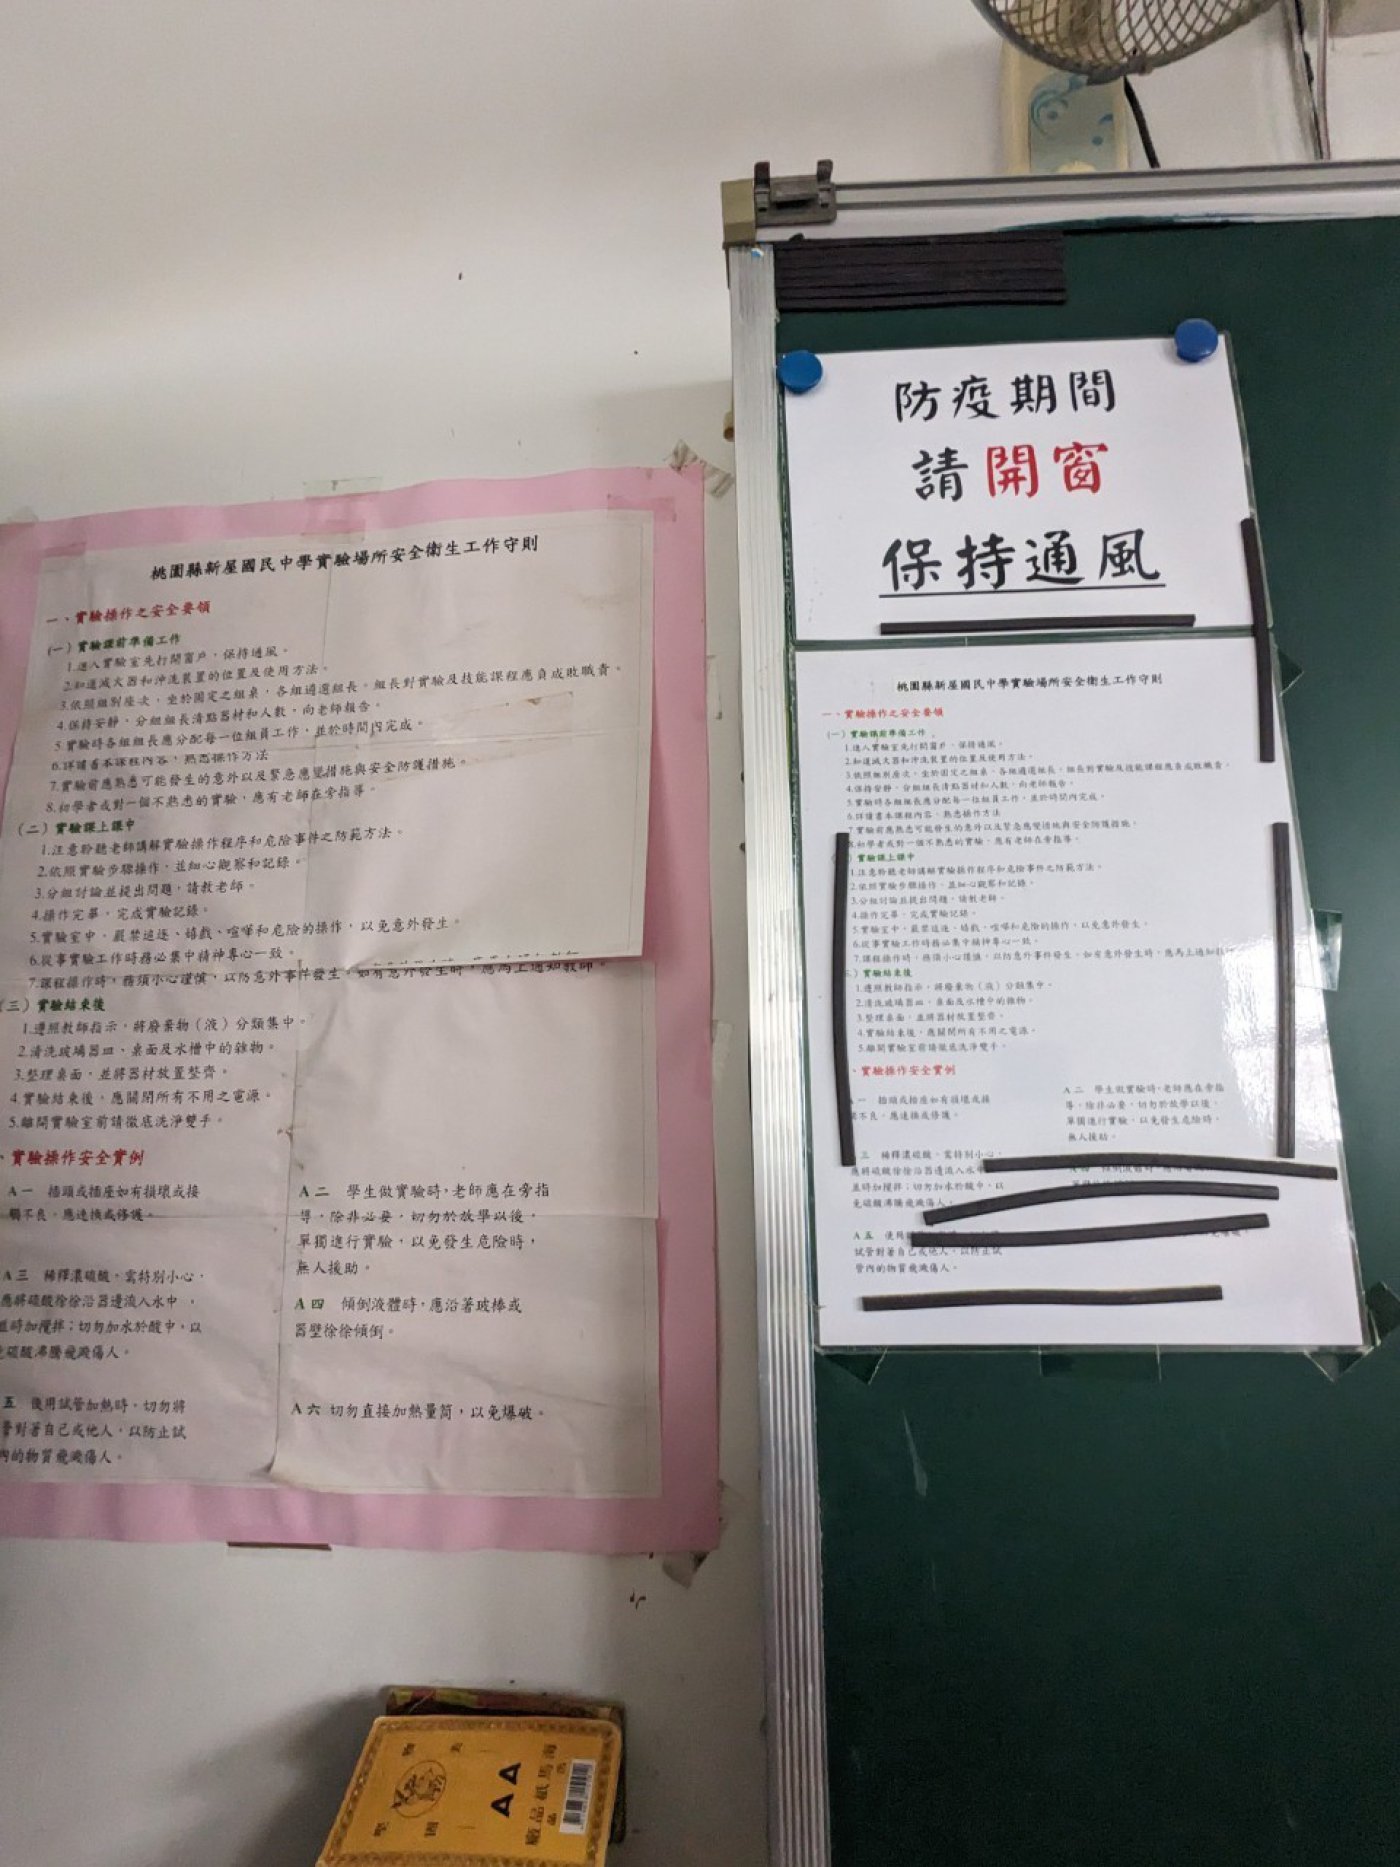 桃園縣新屋國民中學實驗場所安全衛生工作守則
一、實驗操作之安全要領
(一)實驗課前準備工作
1.進入實驗室先行開窗戶，保持通風。
2.知道滅火器和沖洗裝置的位置及使用方法。
3.依照組別座次，坐於固定之組桌，各組遴選組長，組長對實驗及技能課程應負成敗職責。
4.保持安靜，分組組長清點器材和人數，向老師報告。
5.實驗時各組組長應分配每一位組員工作，並於時間內完成。
6.詳讀書本課程內容，熟悉操作方法
7.實驗前應熟悉可能發生的意外以及緊急應變措施與安全防護措施。
8.初學者或對一個不熟悉的實驗，應有老師在旁指導。
(二)實驗課上課中
1.注意聆聽老師講解實驗操作程序和危險事件之防範方法。
2.依照實驗步驟操作，並細心觀察和記錄。
3.分組討論並提出問題，請教老師。
4.操作完畢，完成實驗記錄。
5.實驗室中，嚴禁追逐、嬉戲、喧嘩和危險的操作，以免意外發生。
6.從事實驗工作時務必集中精神專心一致。
7.課程操作時，務須小心謹慎，以防意外事件發生。如有意外發生時，應馬上通知教師。
(三)實驗結束後
1.遵照教師指示，將廢棄物(液)分類集中。
2.清洗玻璃器皿、桌面及水槽中的雜物。
3.整理桌面，並將器材放置整齊。
4.實驗結束後，應關閉所有不用之電源。
5.離開實驗室前請徹底洗淨雙手。
、實驗操作安全實例
A一 插頭或插座如有損壞或接
觸不良，應速換或修護。
A二 學生做實驗時，老師應在旁指
導，除非必要，切勿於放學以後，
單獨進行實驗，以免發生危險時，
無人援助。
A三 稀釋濃硫酸，需特別小心，
應將硫酸徐徐沿器邊流入水中，
並時加攪拌；切勿加水於酸中，以
免硫酸沸騰飛濺傷人。
A四 傾倒液體時，應沿著玻棒或
器壁徐徐傾倒。
五 使用試管加熱時，切勿將
管對著自己或他人，以防止試
內的物質飛濺傷人。
A六 切勿直接加熱量筒，以免爆破。
防疫期間
請開窗
保持通風
桃園縣新屋國民中學實驗場所安全衛生工作守則
一、實驗操作之安全要領
(一)實驗課前準備工作
1.進入實驗室先行開窗戶，保持通風。
2.知道滅火器和沖洗裝置的位置及使用方法。
3.依照組別座次，坐於固定之組桌，各組遴選組長，組長對實驗及技能課程應負成敗職責。
4.保持安靜，分組組長清點器材和人數，向老師報告。
5.實驗時各組組長應分配每一位組員工作，並於時間內完成。
6.詳讀書本課程內容，熟悉操作方法
7.實驗前應熟悉可能發生的意外以及緊急應變措施與安全防護措施。
8.初學者或對一個不熟悉的實驗，應有老師在旁指導。
)實驗課上課中
1.注意聆聽老師講解實驗操作程序和危險事件之防範方法。
2.依照實驗步驟操作，並細心觀察和記錄。
3.分組討論並提出問題，請教老師。
4.操作完畢，完成實驗記錄。
5.實驗室中，嚴禁追逐、嬉戲、喧嘩和危險的操作，以免意外發生。
6.從事實驗工作時務必集中精神專心一致。
7.課程操作時，務須小心謹慎，以防意外事件發生。如有意外發生時，應馬上通知教
三)實驗結束後
1.遵照教師指示，將廢棄物(液)分類集中。
2.清洗玻璃器皿、桌面及水槽中的雜物。
3.整理桌面，並將器材放置整齊。
4.實驗結束後，應關閉所有不用之電源。
5.離開實驗室前請徹底洗淨雙手。
、實驗操作安全實例
一 插頭或插座如有損壞或接
觸不良，應速換或修護。
A二 學生做實驗時，老師應在旁指
導，除非必要，切勿於放學以後，
單獨進行實驗，以免發生危險時，
無人援助。
三 稀釋濃硫酸，需特別小心，
應將硫酸徐徐沿器邊流入水中
並時加攪拌；切勿加水於酸中，以
免硫酸沸騰飛濺傷人。
A五 使用
試管對著自己或他人，以防止試
管內的物質飛濺傷人。
AA
海馬紙品廠
物美
堅固